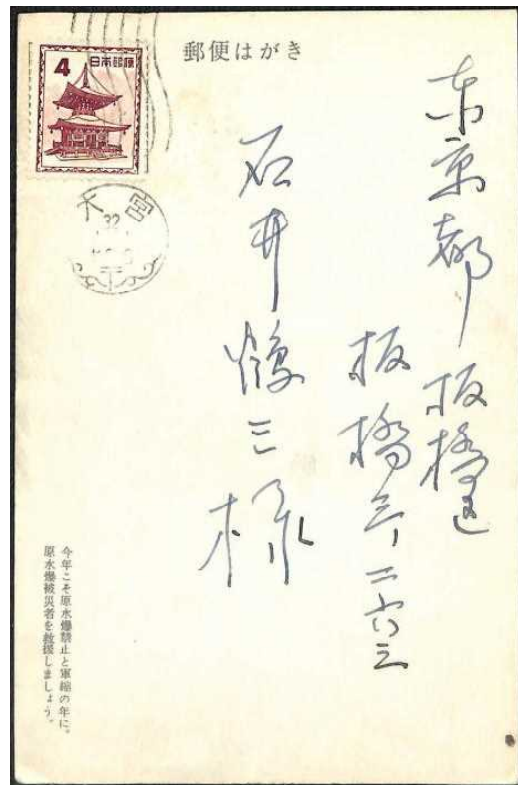 郵便はがき
4 日本郵便
大宮
32
東京都板橋区
板橋三ノ二六三
石井鶴三様
今年こそ原水爆禁止と軍縮の年に。
原水爆被災者を救援しましょう。